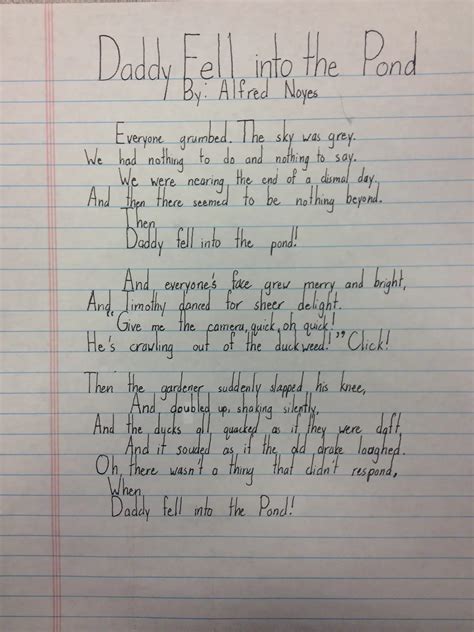 Daddy Fell into the Pond
By: Alfred Noyes
Everyone grumbed. The sky was grey.
We had nothing to do and nothing to say.
We were nearing the end of a dismal day.
And then there seemed to be nothing beyond.
Then
Daddy fell into the pond!
And everyone's face grew merry and bright,
And Timothy danced for sheer delight.
"Give me the camera, quick, oh quick!
He's crawling out of the duckweed!" Click!
Then the gardener suddenly slapped his knee,
And doubled up, shaking silently,
And the ducks all quacked as if they were daft,
And it souded as if the old drake laughed.
Oh, there wasn't a thing that didn't respond,
When
Daddy fell into the Pond!